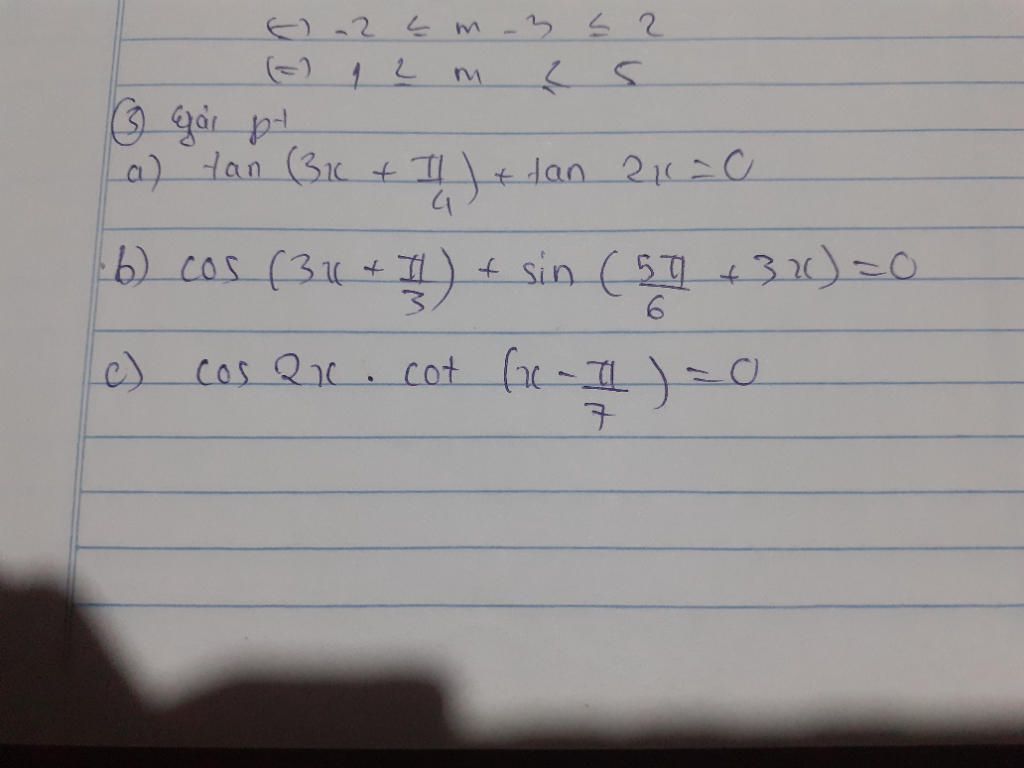 (=) -2 ≤ m - 3 ≤ 2
(=) 1 ≤ m ≤ 5
③ Giải pt
a) tan (3x + π/4) + tan 2x = 0
b) cos (3x + π/3) + sin (5π/6 + 3x) = 0
c) cos 2x . cot (x - π/7) = 0